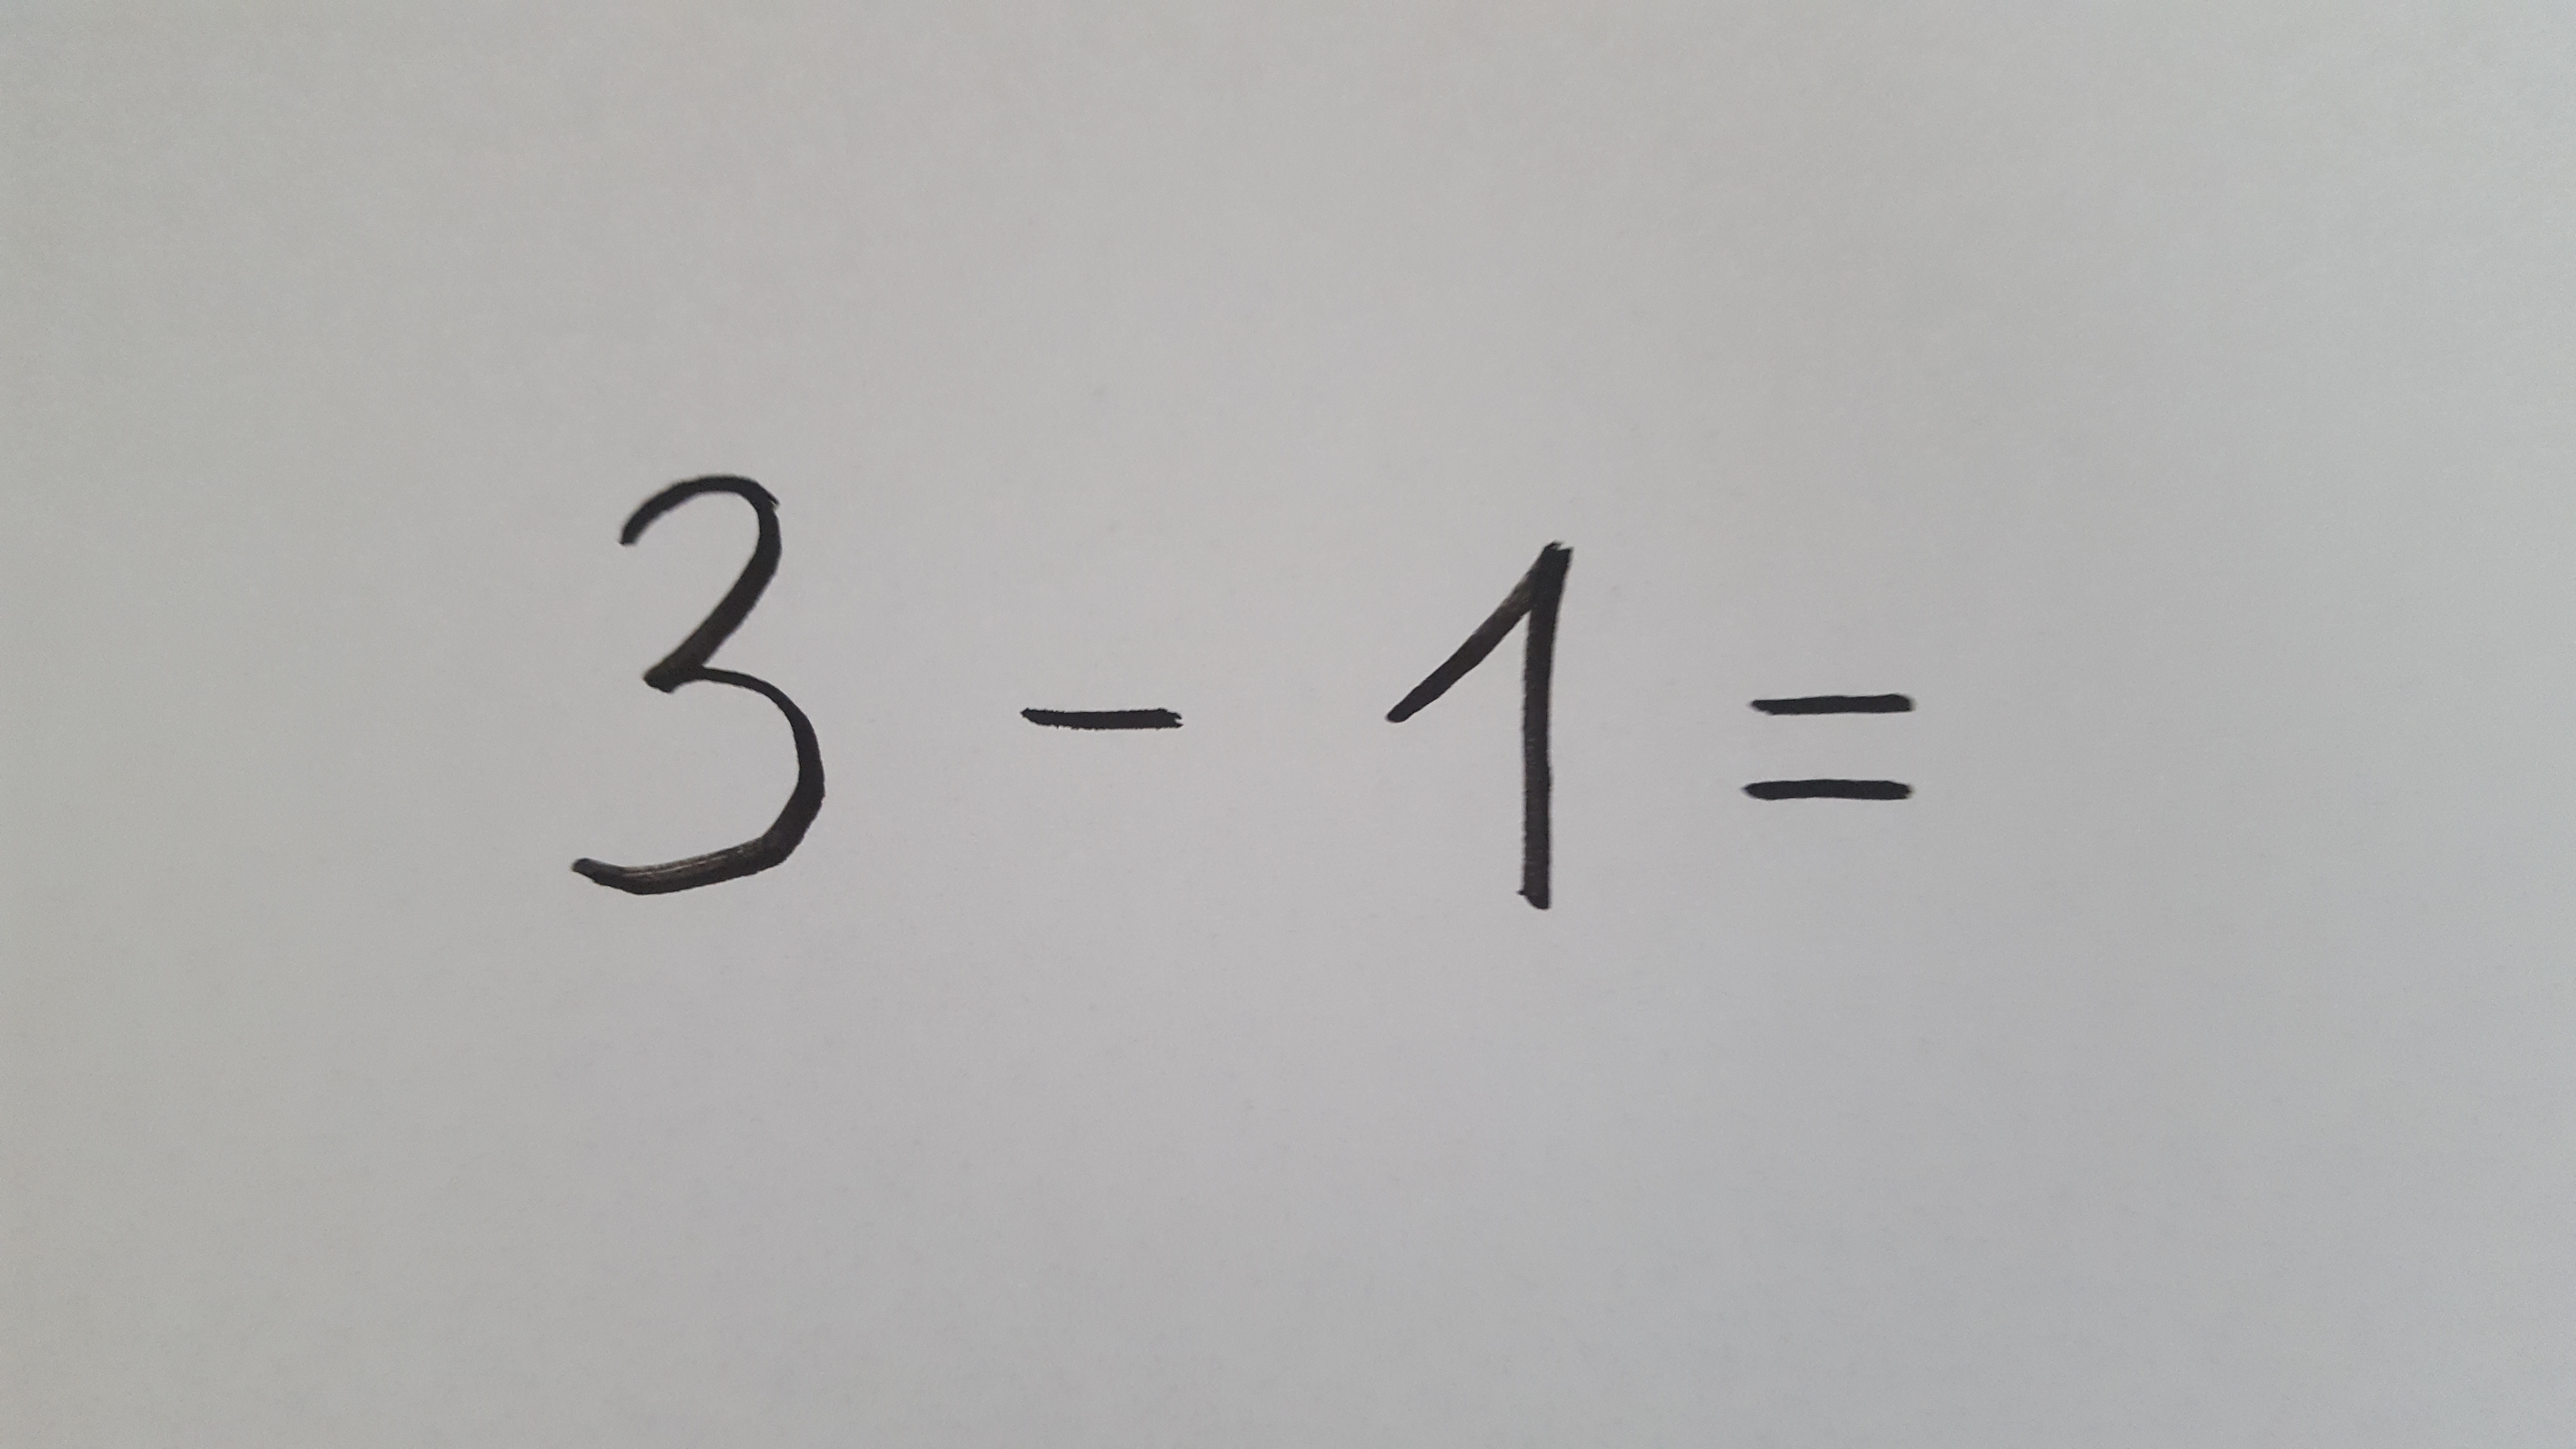 3 - 1 =